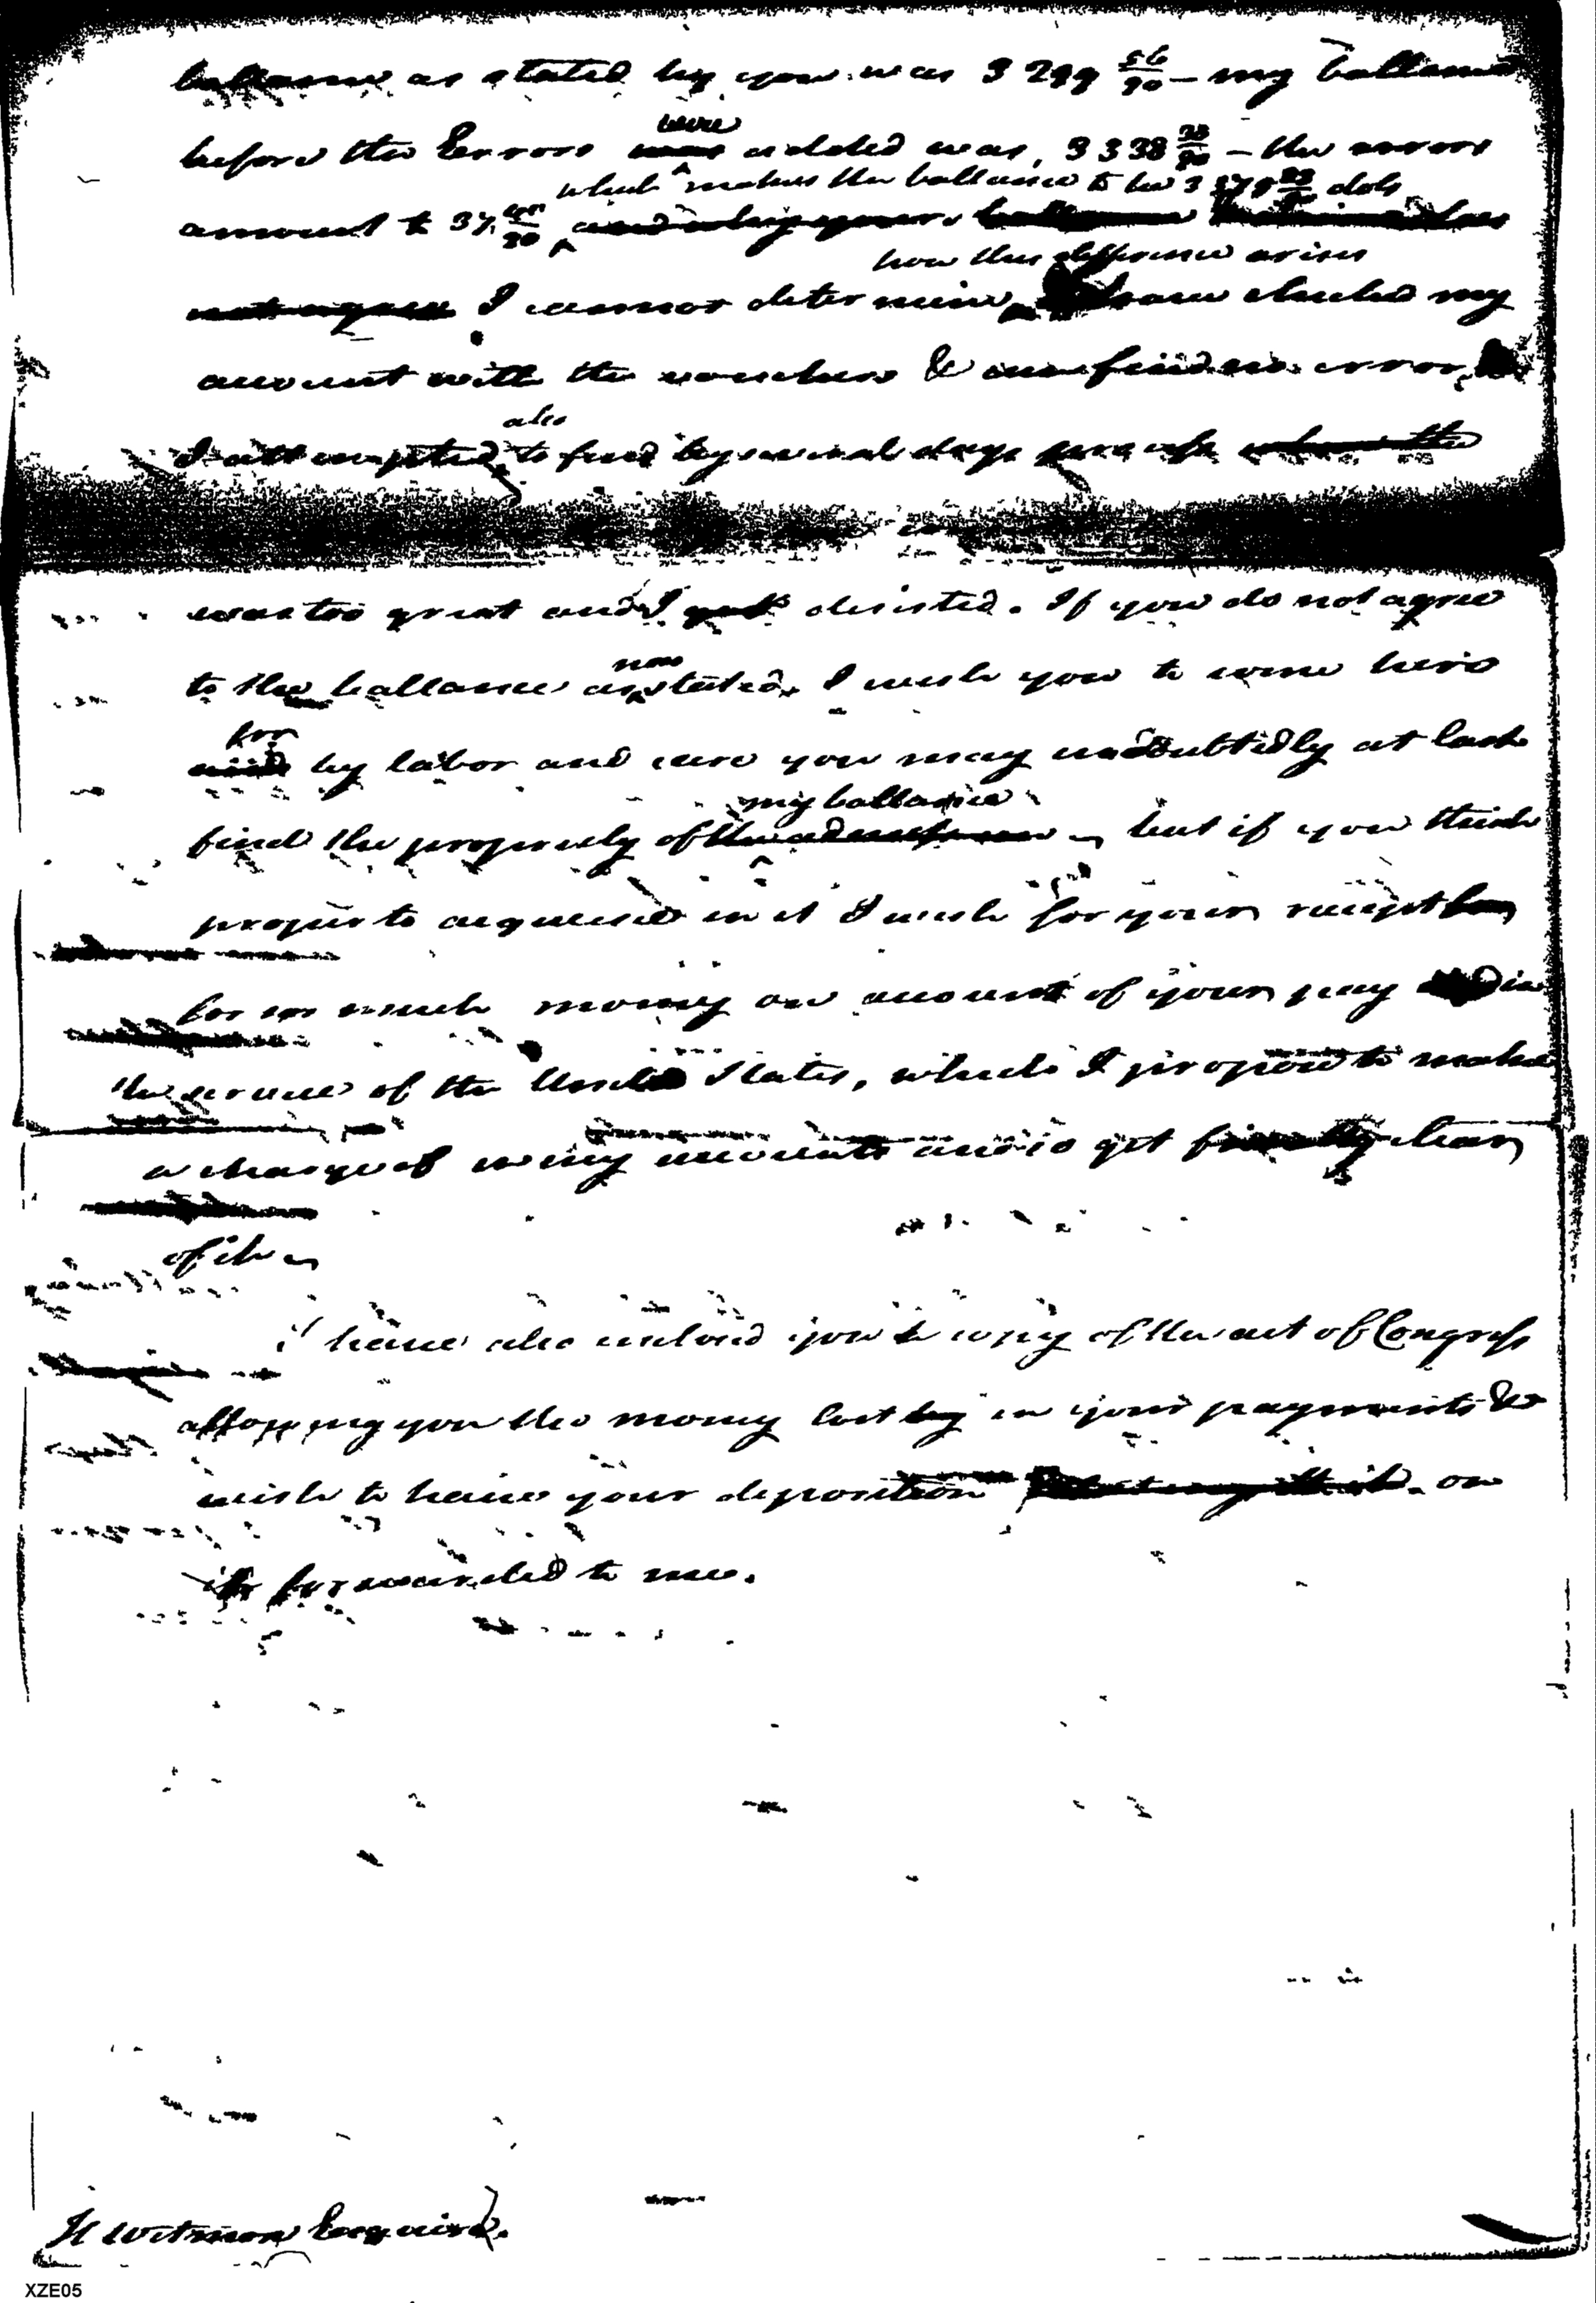 ballance as stated by you was 3299 56/90 — my ballance
were
before the Errors was added was, 3338 38/90 — the errors
which makes the ballance to be dols
amount to 37
how this difference arises
not agree I cannot determine, have checked my
account with the vouchers & can find no error,
also
I attempted to find by several days
was too great and I desisted. If you do not agree
now
to the ballance as stated. I wish you to come here
for
by labor and care you may undoubtidly at last
my ballance
find the propriety of the — but if you think
proper to acquiesce in it I wish for your receipt
for so much money on account of your pay in
the service of the United States, which I propose to make
a charge of in my accounts and so get finally clear
of it —
I have also inclosed you a copy of the act of Congress
allowing you the money lost by in your payments &
wish to have your deposition on
it forwarded to me.
Witman Esquire.
XZE05